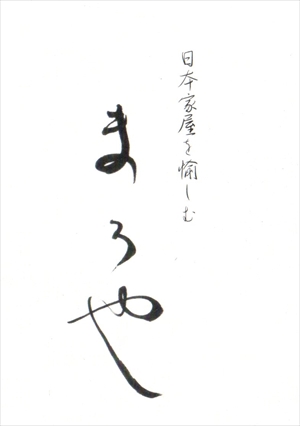 日本家屋を愉しむ
まろや